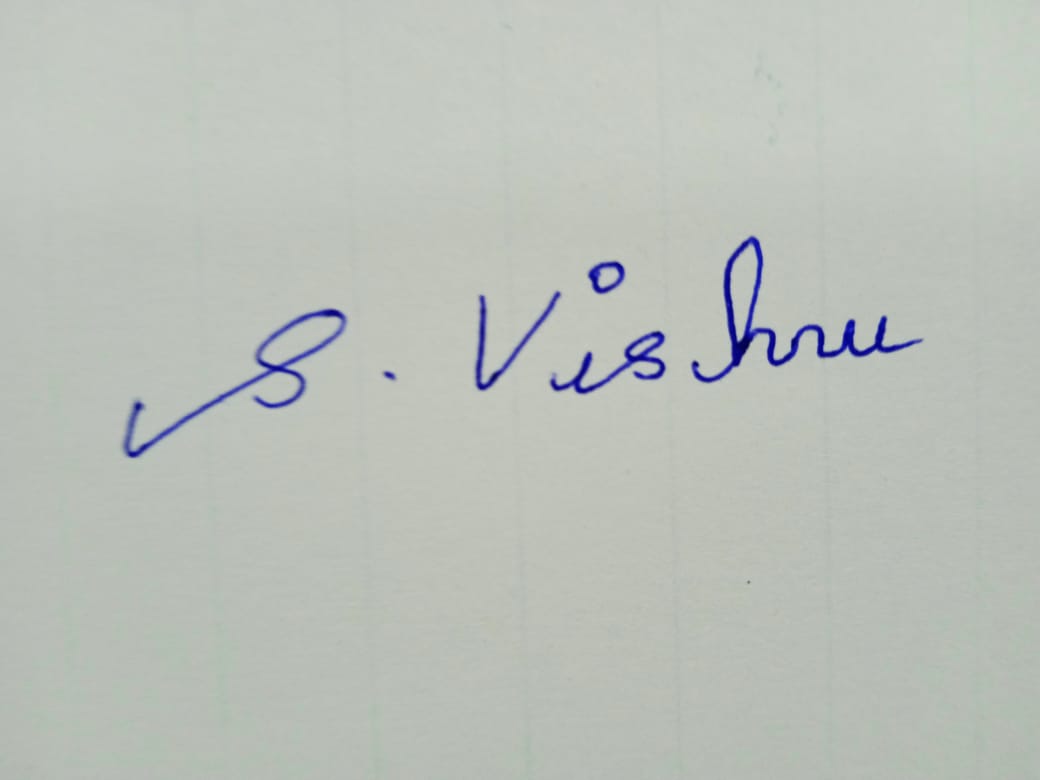 S. Vishnu